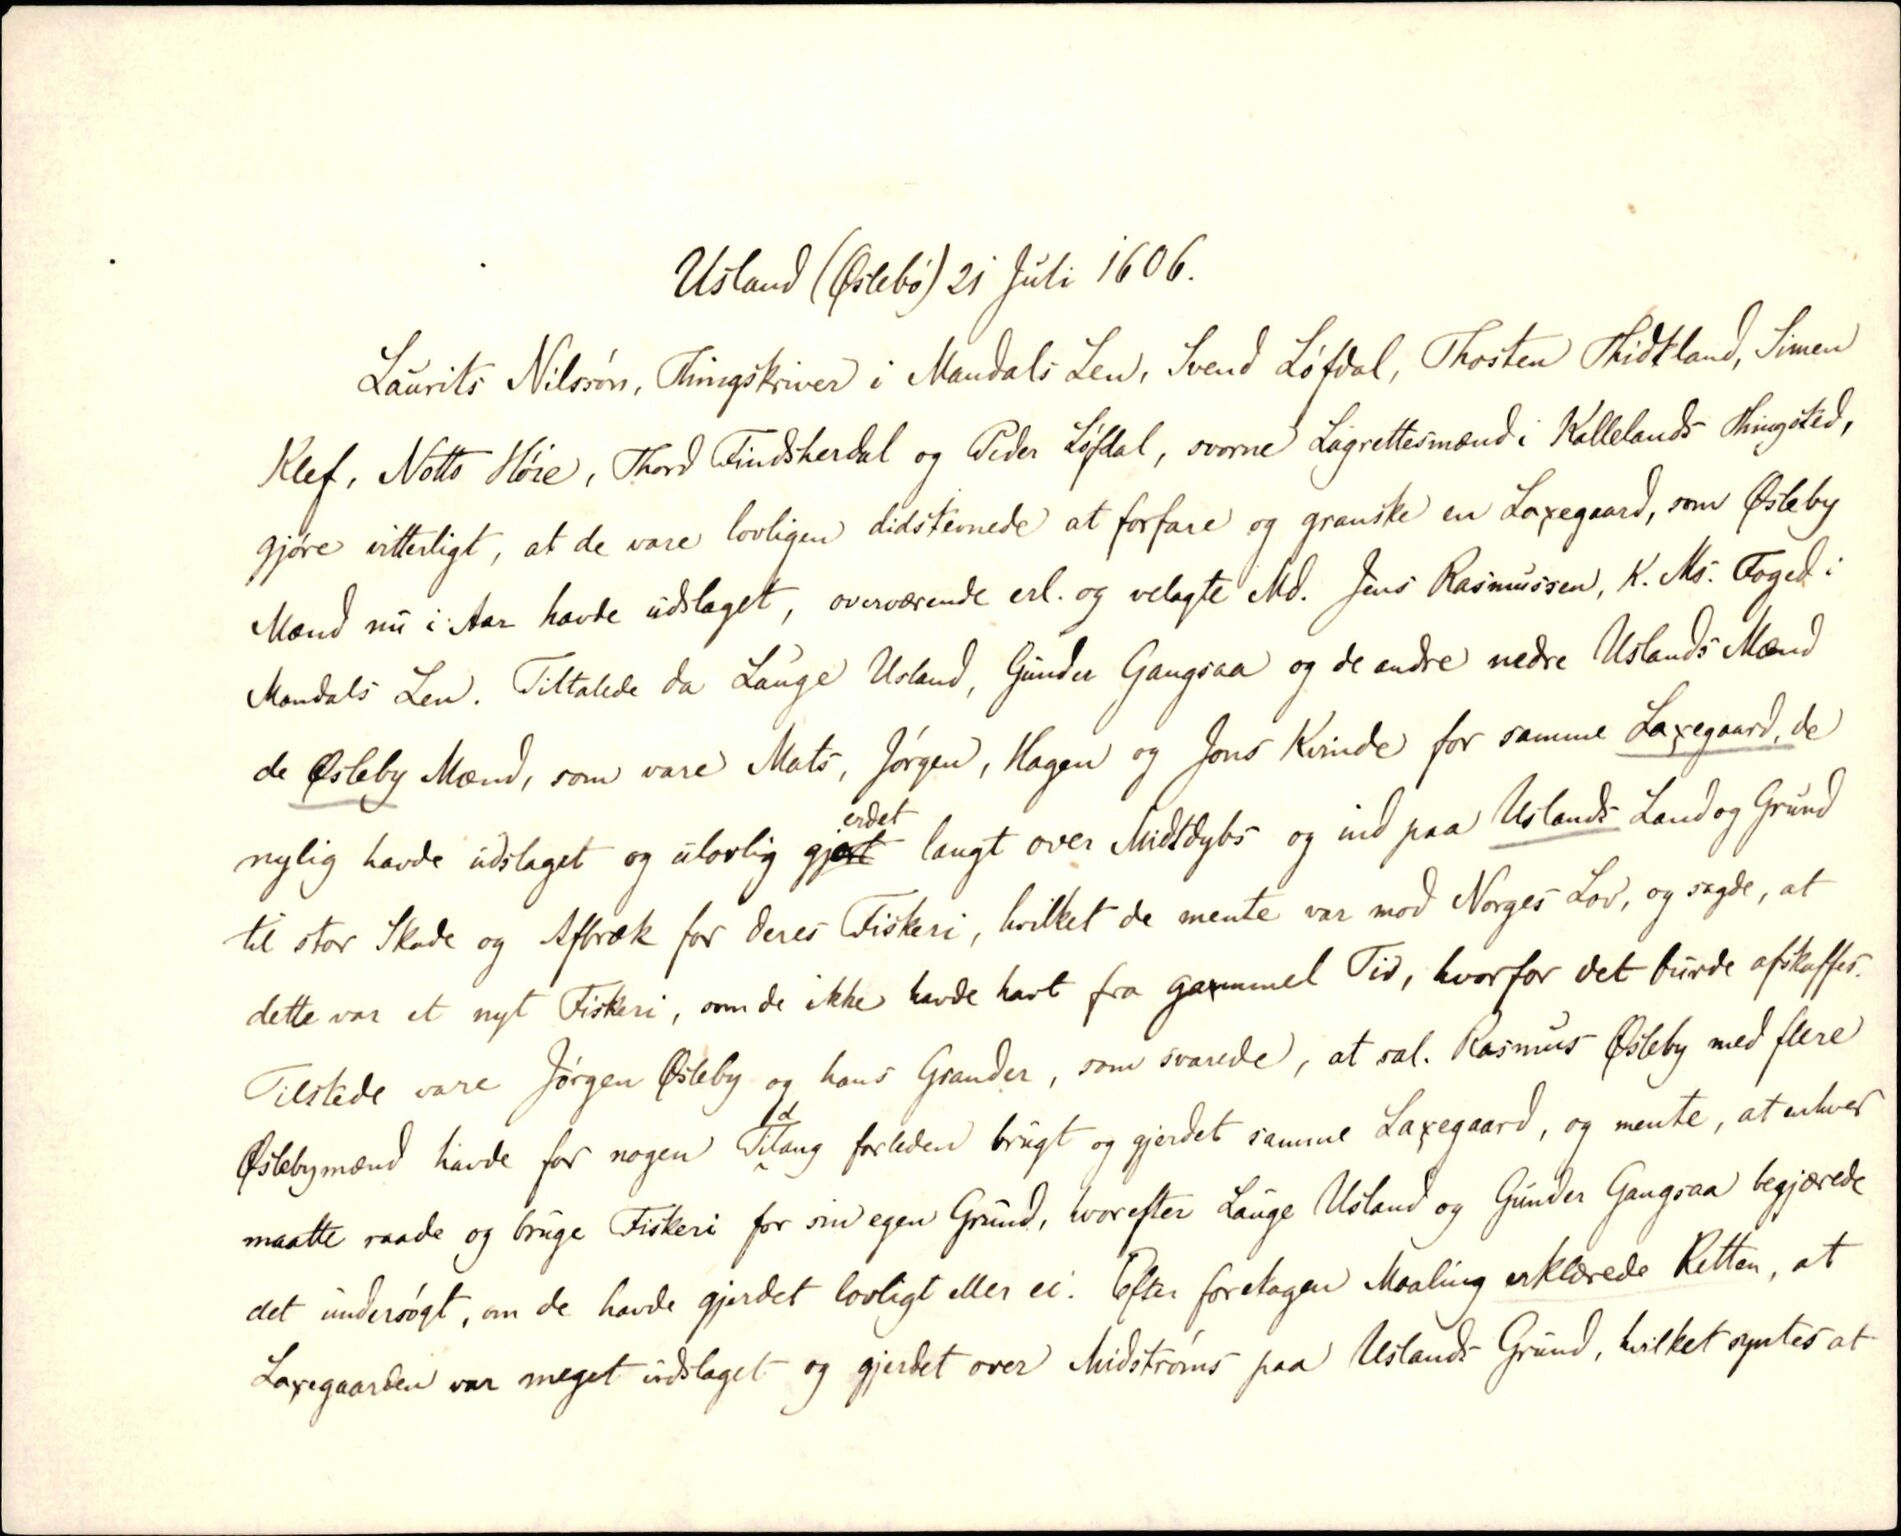 Usland (Øslebø) 21 Juli 1606.
Laurits Nilssøn, Thingskriver i Mandals Len, Svend Løfdal, Thosten Thidtland, Simen
Klef, Notto Høie, Thord Findsherdal og Peder Løfdal, svorne Lagrettesmænd i Kallelands Thingsted,
gjøre vitterligt, at de vare lovligen didstevnede at forfare og granske en Laxegaard, som Øsleby
Mænd nu i Aar havde udslaget, overværende erl. og velagte Md. Jens Rasmussen, K. Ms. Foged i
Mandals Len. Tiltalede da Lauge Usland, Gunder Gangsaa og de andre nedre Uslands Mænd
de Øsleby Mænd, som vare Mats, Jørgen, Hagen og Jons Kvinde for samme Laxegaard, de
nylig havde udslaget og ulovlig gjerdet langt over Midtdybs og ind paa Uslands Land og Grund
til stor Skade og Afbræk for deres Fiskeri, hvilket de mente var mod Norges Lov, og sagde, at
dette var et nyt Fiskeri, som de ikke havde havt fra gammel Tid, hvorfor det burde afskaffes.
Tilstede vare Jørgen Øsleby og hans Grander, som svarede, at sal. Rasmus Øsleby med flere
Øslebymænd havde for nogen Tidlang forleden brugt og gjerdet samme Laxegaard, og mente, at enhver
maatte raade og bruge Fiskeri for sin egen Grund, hvorefter Lauge Usland og Gunder Gangsaa begjærede
det undersøgt, om de havde gjerdet lovligt eller ei. Efter foretagen Maaling erklærede Retten, at
Laxegaarden var meget udslaget og gjerdet over Midstrøms paa Uslands Grund, hvilket syntes at